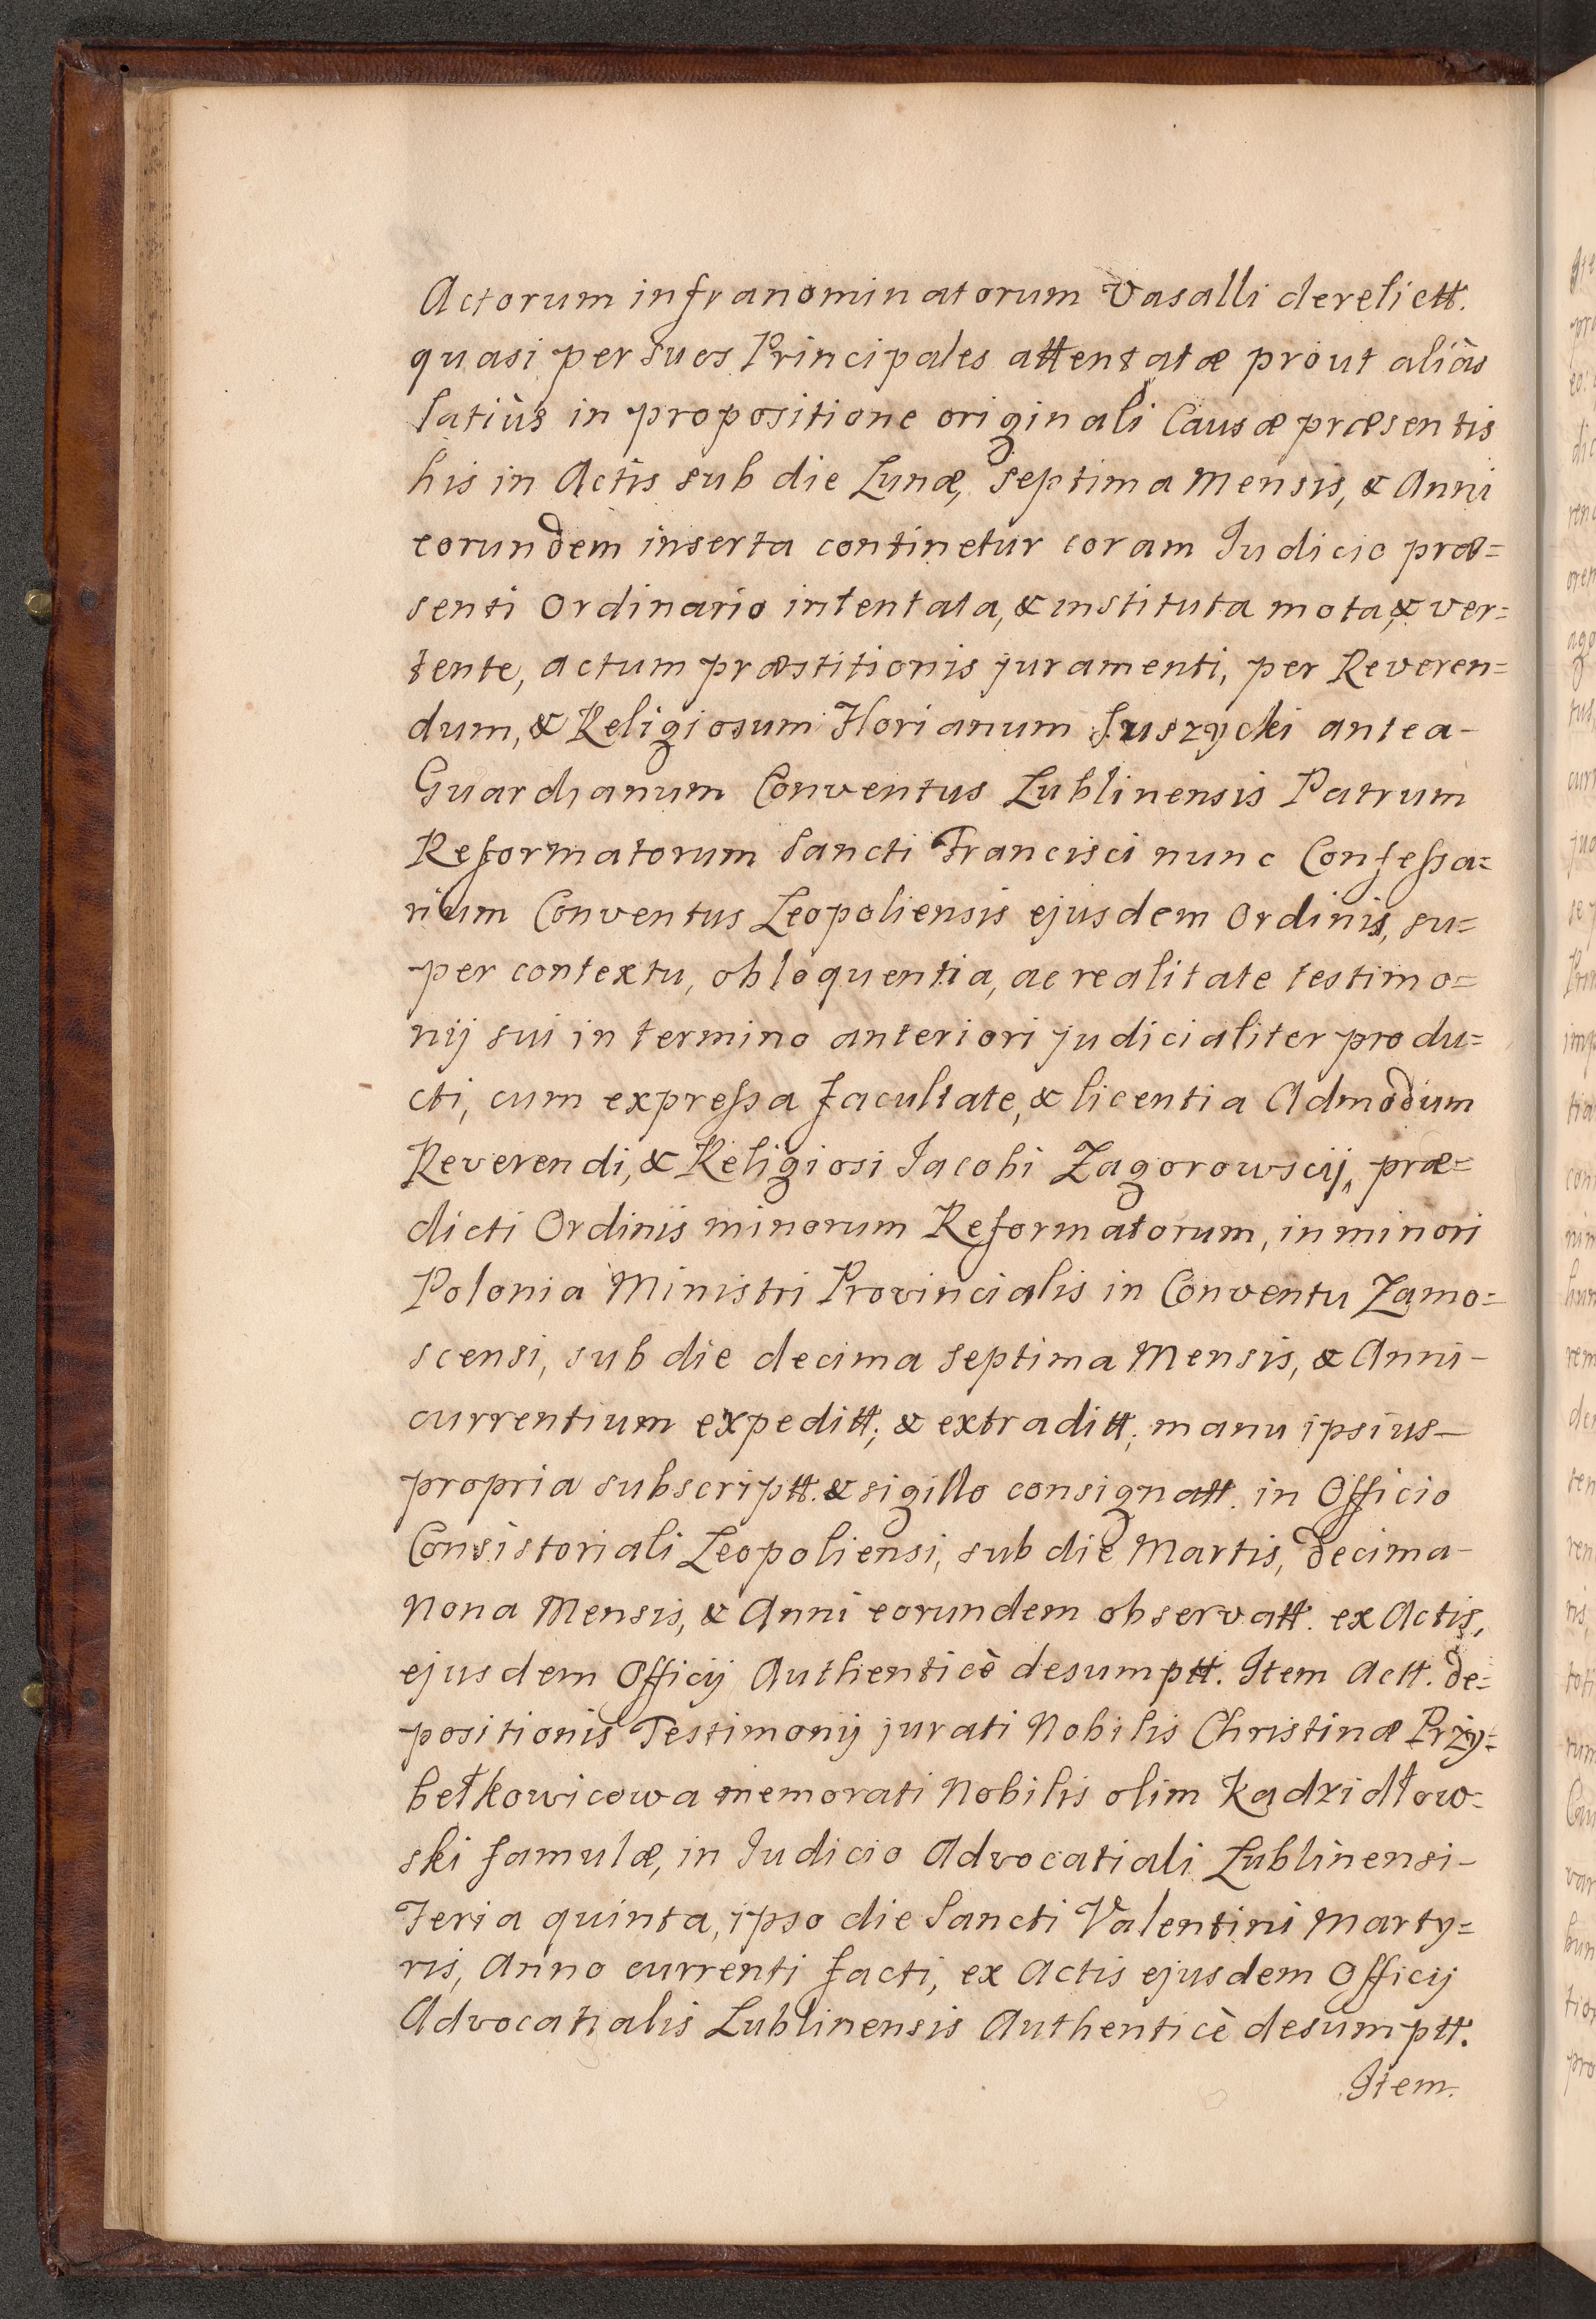 Actorum infranominatorum Vasalli derelictt.
quasi per suos Principales attentatæ prout aliàs
latiùs in propositione originali Causæ præsentis
his in Actis sub die Lunæ, septima Mensis, & Anni
eorundem inserta continetur coram Iudicio præ=
senti Ordinario intentata, & instituta mota, & ver=
tente, actum præstitionis juramenti, per Reveren=
dum, & Religiosum Florianum Juszycki antea-
Guardianum Conventus Lublinensis Patrum
Reformatorum Sancti Francisci nunc Confessa=
rium Conventus Leopoliensis ejusdem Ordinis, su=
per contextu, obloquentia, ac realitate testimo=
nij sui in termino anteriori judicialiter produ=
cti, cum expressa facultate, & licentia Admodum
Reverendi, & Religiosi Iacobi Zagorowscij, præ=
dicti Ordinis minorum Reformatorum, in minori
Polonia Ministri Provincialis in Conventu Zamo=
scensi, sub die decima septima Mensis, & Anni-
currentium expeditt; & extraditt; manu ipsius-
propria subscriptt. & sigillo consignatt. in Officio
Consistoriali Leopoliensi, sub die Martis, decima-
Nona Mensis, & Anni eorundem observatt. ex Actis,
ejusdem Officij Authenticè desumptt. Item Actt. de=
positionis Testimonij jurati Nobilis Christinæ Przy=
bełkowicowa memorati Nobilis olim Kadzidłow=
ski famulæ, in Iudicio Advocatiali Lublinensi-
Feria quinta, ipso die Sancti Valentini Marty=
ris, Anno currenti facti, ex Actis ejusdem Officij
Advocatialis Lublinensis Authenticè desumptt.
Item.